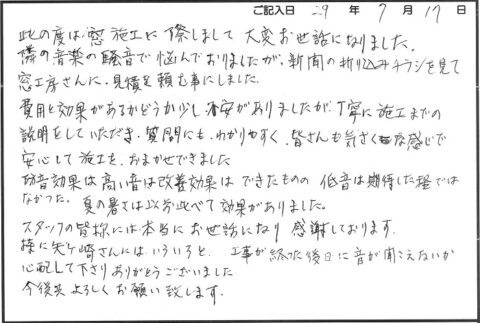 ご記入日 29 年 7 月 17 日
此の度は、窓施工に際しまして大変お世話になりました。
隣の音楽の騒音で悩んでおりましたが、新聞の折り込みチラシを見て
窓工房さんに、見積を頼む事にしました。
費用と効果があるかどうか少し不安がありましたが、丁寧に施工までの
説明をしていただき、質問にも、わかりやすく、皆さんも気さくな感じで
安心して施工を、おまかせできました
防音効果は高い音は改善効果はできたものの 低音は期待した程では
なかった。 夏の暑さは以前比べて効果がありました。
スタッフの皆様には本当にお世話になり 感謝しております。
様に矢ケ崎さんには、いろいろと、工事が終った後日に音が聞こえないか
心配して下さりありがとうございました
今後共よろしくお願い致します。